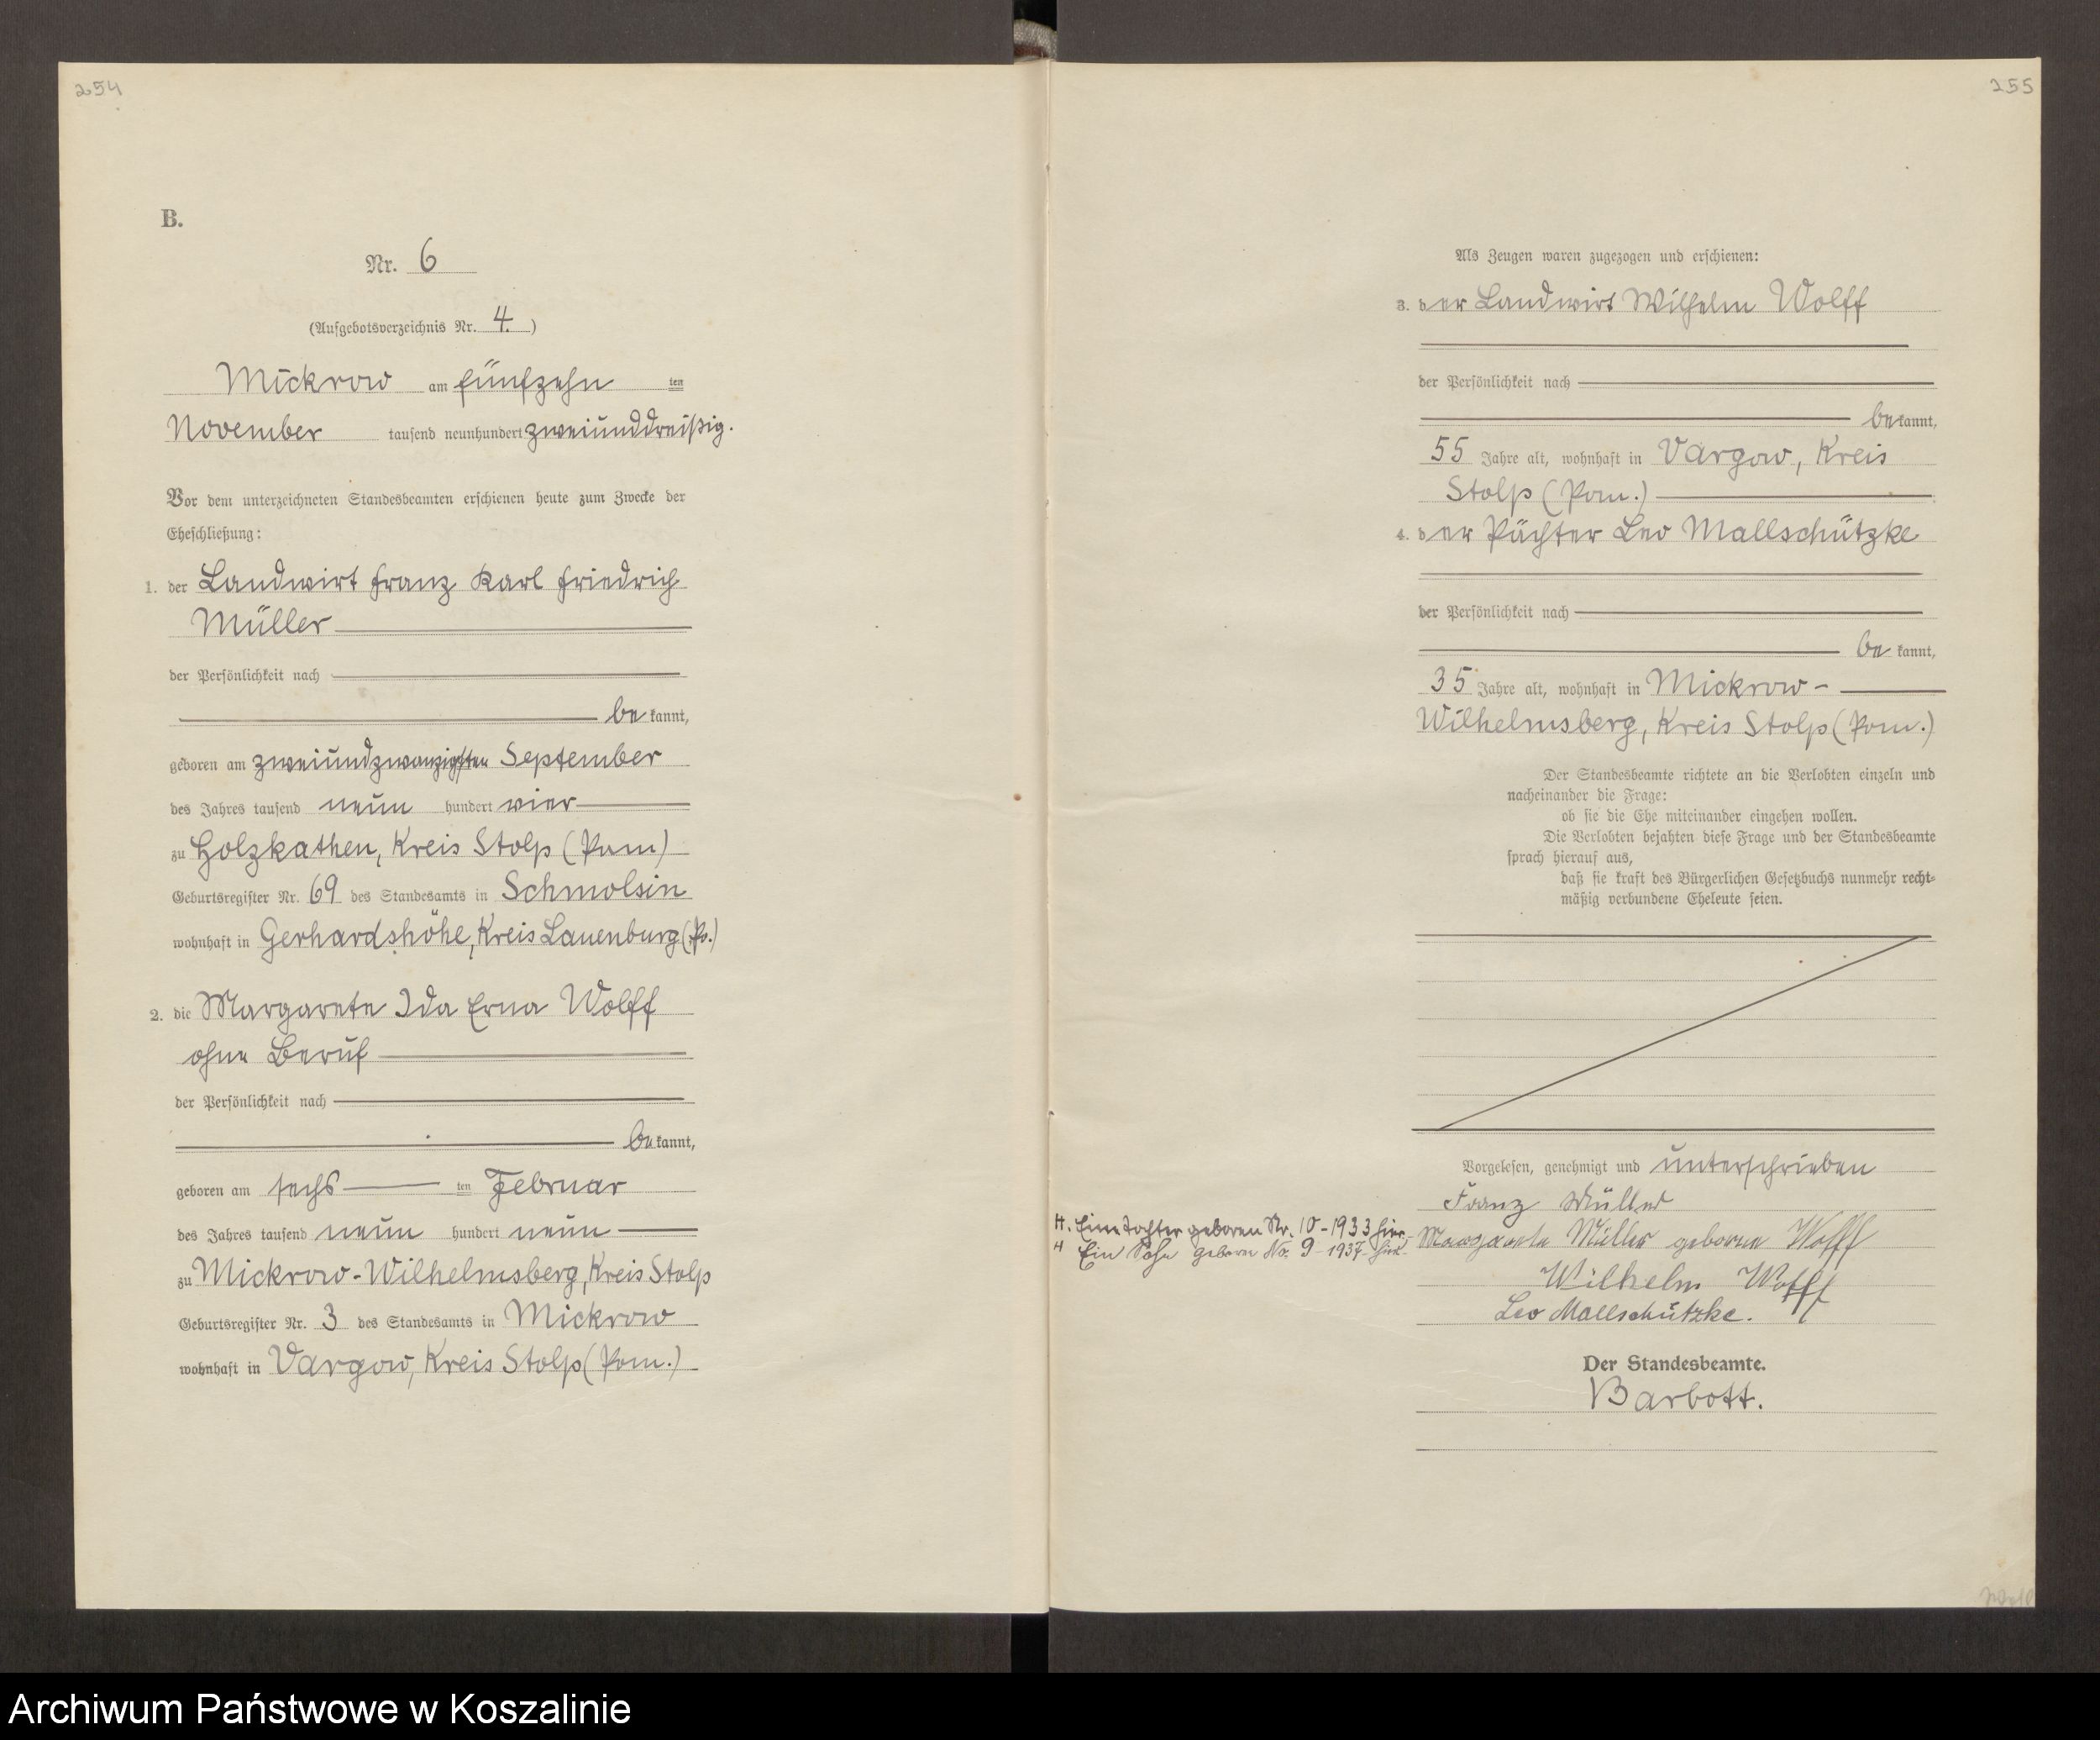 254
B.
Nr. 6
(Aufgebotsverzeichnis Nr. 4.)
Mickrow am fünfzehn ten
November tausend neunhundert zweiunddreißig.
Vor dem unterzeichneten Standesbeamten erschienen heute zum Zwecke der
Eheschließung:
1. der Landwirt Franz Karl Friedrich
Müller
der Persönlichkeit nach
be kannt,
geboren am zweiundzwanzigsten September
des Jahres tausend neun hundert vier
zu Holzkathen, Kreis Stolp (Pom)
Geburtsregister Nr. 69 des Standesamts in Schmolsin
wohnhaft in Gerhardshöhe, Kreis Lauenburg (Po.)
2. die Margarete Ida Erna Wolff
ohne Beruf
der Persönlichkeit nach
be kannt,
geboren am sechs ten Februar
des Jahres tausend neun hundert neun
zu Mickrow-Wilhelmsberg, Kreis Stolp
Geburtsregister Nr. 3 des Standesamts in Mickrow
wohnhaft in Vargow, Kreis Stolp (Pom.)
255
Als Zeugen waren zugezogen und erschienen:
3. der Landwirt Wilhelm Wolff
der Persönlichkeit nach
bekannt,
55 Jahre alt, wohnhaft in Vargow, Kreis
Stolp (Pom.)
4. der Pächter Leo Mallschützke
der Persönlichkeit nach
be kannt,
35 Jahre alt, wohnhaft in Mickrow-
Wilhelmsberg, Kreis Stolp (Pom.)
Der Standesbeamte richtete an die Verlobten einzeln und
nacheinander die Frage:
ob sie die Ehe miteinander eingehen wollen.
Die Verlobten bejahten diese Frage und der Standesbeamte
sprach hierauf aus,
daß sie kraft des Bürgerlichen Gesetzbuchs nunmehr recht-
mäßig verbundene Eheleute seien.
Vorgelesen, genehmigt und unterschrieben
Franz Müller
H. Eine Tochter geboren Nr. 10-1933 hier.
Margarete Müller geborene Wolff
H Ein Sohn geboren No. 9-1937 hier.
Wilhelm Wolff
Leo Mallschützke.
Der Standesbeamte.
Barbott.
Archiwum Państwowe w Koszalinie